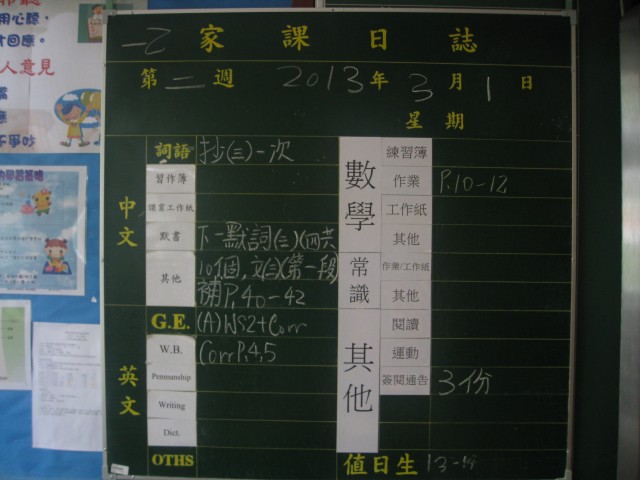 一乙家課日誌
第二週 2013年3月1日
星期
中文
詞語 抄(三)一次
習作簿
課業工作紙
默書 下一默詞(三)(四)共
其他 10個,文(三)(第一段)
補P.40-42
英文
G.E. (A)WS2+Corr
W.B. Corr P.4,5
Penmanship
Writing
Dict.
OTHS
數學
練習簿
作業 P.10-12
工作紙
其他
常識
作業/工作紙
其他
其他
閱讀
運動
簽閱通告 3份
值日生 13
用心聽,
才回應。
人意見
不爭吵